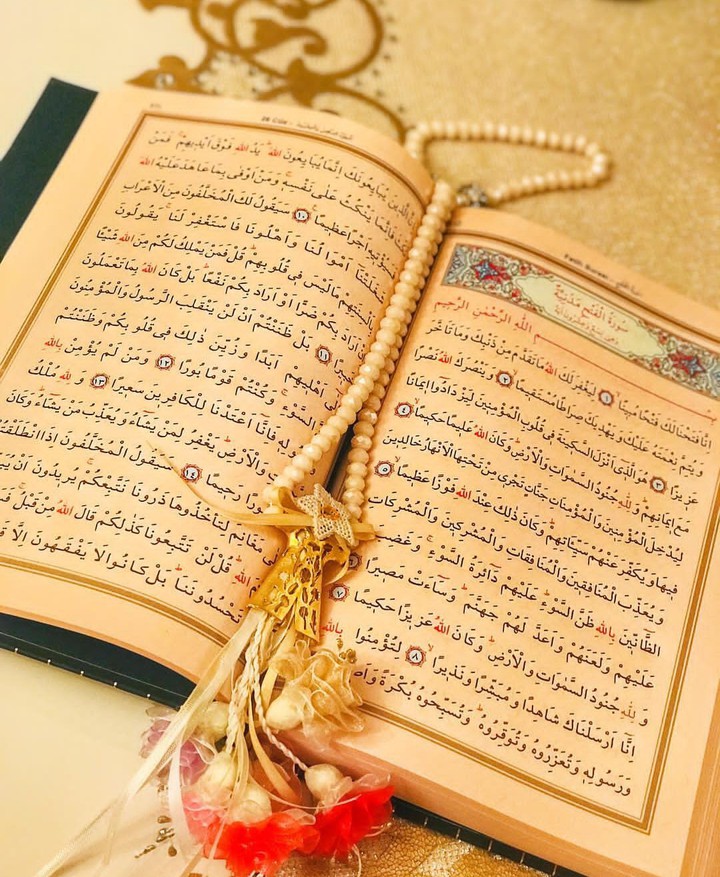 Fetih Suresi
سُورَةُ الْفَتْحِ مَدَنِيَّةٌ
وَهِيَ تِسْعٌ وَعِشْرُونَ اٰيَةً
اللّٰهِ الرَّحْمٰنِ الرَّحِيمِ
اِنَّا فَتَحْنَا لَكَ فَتْحًا مُبِينًاۙ ١ لِيَغْفِرَ لَكَ اللّٰهُ مَا تَقَدَّمَ مِنْ ذَنْبِكَ وَمَا تَاَخَّرَ
وَيُتِمَّ نِعْمَتَهُ عَلَيْكَ وَيَهْدِيَكَ صِرَاطًا مُسْتَقِيمًاۙ ٢ وَيَنْصُرَكَ اللّٰهُ نَصْرًا
عَزِيزًا ٣ هُوَ الَّذِي اَنْزَلَ السَّكِينَةَ فِي قُلُوبِ الْمُؤْمِنِينَ لِيَزْدَادُوا اِيمَانًا
مَعَ اِيمَانِهِمْۜ وَلِلّٰهِ جُنُودُ السَّمٰوَاتِ وَالْاَرْضِۜ وَكَانَ اللّٰهُ عَلِيمًا حَكِيمًاۙ ٤
لِيُدْخِلَ الْمُؤْمِنِينَ وَالْمُؤْمِنَاتِ جَنَّاتٍ تَجْرِي مِنْ تَحْتِهَا الْاَنْهَارُ خَالِدِينَ
فِيهَا وَيُكَفِّرَ عَنْهُمْ سَيِّاٰتِهِمْۜ وَكَانَ ذٰلِكَ عِنْدَ اللّٰهِ فَوْزًا عَظِيمًاۙ ٥
وَيُعَذِّبَ الْمُنَافِقِينَ وَالْمُنَافِقَاتِ وَالْمُشْرِكِينَ وَالْمُشْرِكَاتِ
الظَّانِّينَ بِاللّٰهِ ظَنَّ السَّوْءِۜ عَلَيْهِمْ دَائِرَةُ السَّوْءِۚ وَغَضِبَ
عَلَيْهِمْ وَلَعَنَهُمْ وَاَعَدَّ لَهُمْ جَهَنَّمَۜ وَسَاءَتْ مَصِيرًا
وَلِلّٰهِ جُنُودُ السَّمٰوَاتِ وَالْاَرْضِۜ وَكَانَ اللّٰهُ عَزِيزًا حَكِيمًا ٧
اِنَّا اَرْسَلْنَاكَ شَاهِدًا وَمُبَشِّرًا وَنَذِيرًاۙ ٨ لِتُؤْمِنُوا بِاللّٰهِ
وَرَسُولِهِ وَتُعَزِّرُوهُ وَتُوَقِّرُوهُۜ وَتُسَبِّحُوهُ بُكْرَةً
الَّذِينَ يُبَايِعُونَكَ اِنَّمَا يُبَايِعُونَ اللّٰهَۜ يَدُ اللّٰهِ فَوْقَ اَيْدِيهِمْۚ فَمَنْ
فَاِنَّمَا يَنْكُثُ عَلٰى نَفْسِهِۚ وَمَنْ اَوْفٰى بِمَا عَاهَدَ عَلَيْهُ اللّٰهَ
اَجْرًا عَظِيمًا ١٠ سَيَقُولُ لَكَ الْمُخَلَّفُونَ مِنَ الْاَعْرَابِ
شَغَلَتْنَا اَمْوَالُنَا وَاَهْلُونَا فَاسْتَغْفِرْ لَنَاۚ يَقُولُونَ
مَا لَيْسَ فِي قُلُوبِهِمْۜ قُلْ فَمَنْ يَمْلِكُ لَكُمْ مِنَ اللّٰهِ شَيْـًٔا
اَرَادَ بِكُمْ ضَرًّا اَوْ اَرَادَ بِكُمْ نَفْعًاۜ بَلْ كَانَ اللّٰهُ بِمَا تَعْمَلُونَ
١١ بَلْ ظَنَنْتُمْ اَنْ لَنْ يَنْقَلِبَ الرَّسُولُ وَالْمُؤْمِنُونَ
اَهْلِيهِمْ اَبَدًا وَزُيِّنَ ذٰلِكَ فِي قُلُوبِكُمْ وَظَنَنْتُمْ
السَّوْءِۚ وَكُنْتُمْ قَوْمًا بُورًا ١٢ وَمَنْ لَمْ يُؤْمِنْ بِاللّٰهِ
فَاِنَّا اَعْتَدْنَا لِلْكَافِرِينَ سَعِيرًا ١٣ وَلِلّٰهِ مُلْكُ
وَالْاَرْضِۜ يَغْفِرُ لِمَنْ يَشَاءُ وَيُعَذِّبُ مَنْ يَشَاءُۜ وَكَانَ
رَحِيمًا ١٤ سَيَقُولُ الْمُخَلَّفُونَ اِذَا انْطَلَقْتُمْ
مَغَانِمَ لِتَأْخُذُوهَا ذَرُونَا نَتَّبِعْكُمْۚ يُرِيدُونَ اَنْ
اللّٰهِۜ قُلْ لَنْ تَتَّبِعُونَا كَذٰلِكُمْ قَالَ اللّٰهُ مِنْ قَبْلُۚ
تَحْسُدُونَنَاۜ بَلْ كَانُوا لَا يَفْقَهُونَ اِلَّا